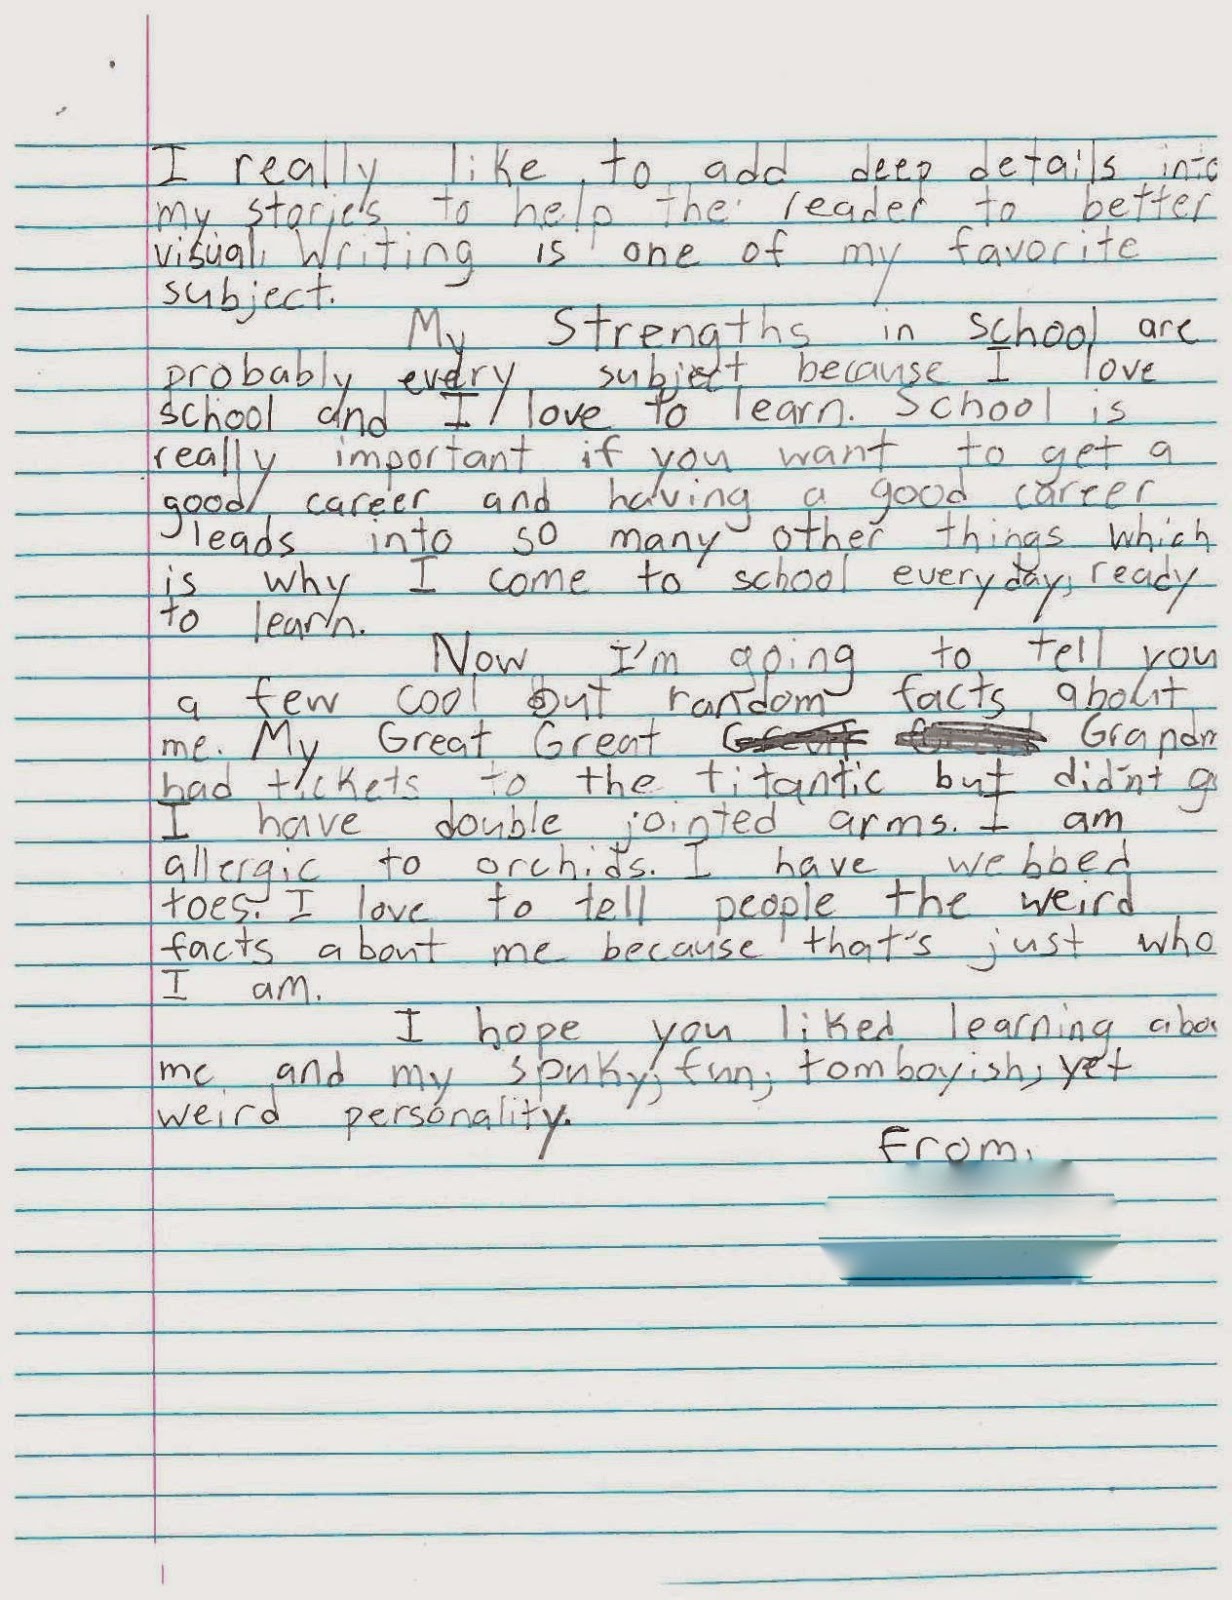 I really like to add deep details into
my stories to help the reader to better
visual. Writing is one of my favorite
subject.
My Strengths in school are
probably every subject because I love
school and I love to learn. School is
really important if you want to get a
good career and having a good career
leads into so many other things which
is why I come to school everyday, ready
to learn.
Now I'm going to tell you
a few cool but random facts about
me. My Great Great Grandm
had tickets to the titantic but didn't go
I have double jointed arms. I am
allergic to orchids. I have webbed
toes. I love to tell people the weird
facts about me because that's just who
I am.
I hope you liked learning abou
me and my spunky, fun, tomboyish, yet
weird personality.
From,